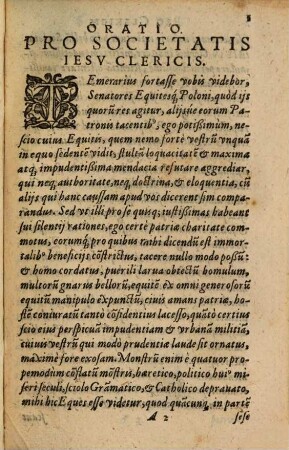 ORATIO.
PRO SOCIETATIS
IESV CLERICIS.
TEmerarius fortasse vobis videbor,
Senatores Equitesq; Poloni, quòd ijs
quorū res agitur, alijsue eorum Pa-
tronis tacentib⁹, ego potißimum, ne-
scio cuius Equitis, quem nemo fortè vestrū vnquā
in equo sedentē vidit, stultā loquacitatē & maxima
atq; impudentissima mendacia refutare aggrediar,
qui neq; authoritate, neq; doctrina, & eloquentia, cū
alijs qui hanc caussam apud vos dicerent sim compa-
randus. Sed vt illi pro se quisq; iustißimas habeant
sui silentij rationes, ego certè patriæ charitate com-
motus, eorumq; pro quibus mihi dicendū est immor-
talib⁹ beneficijs cōstrictus, tacere nullo modo posū:
& homo cordatus, puerili larua obtectū homulum,
multorū gnarus bellorū, equitē èx omni generosorū
equitū manipulo expunctū, ciuis amans patriæ, ho-
stē coniuratū tantò cōsidentius lacesso, quātò certius
scio eius perspicuā impudentiam & vrbanā militiā,
cuiuis vestrū qui modò prudentiæ laude sit ornatus,
maximè fore exosam. Monstrū enim è quatuor pro-
pemodum cōflatū mōstris, hæretico, politico hui⁹ mi-
seri seculi, sciolo Grāmatico, & Catholico deprauato,
mihi hic Eques esse videtur, quod quācunq; in partē
A 2 sese